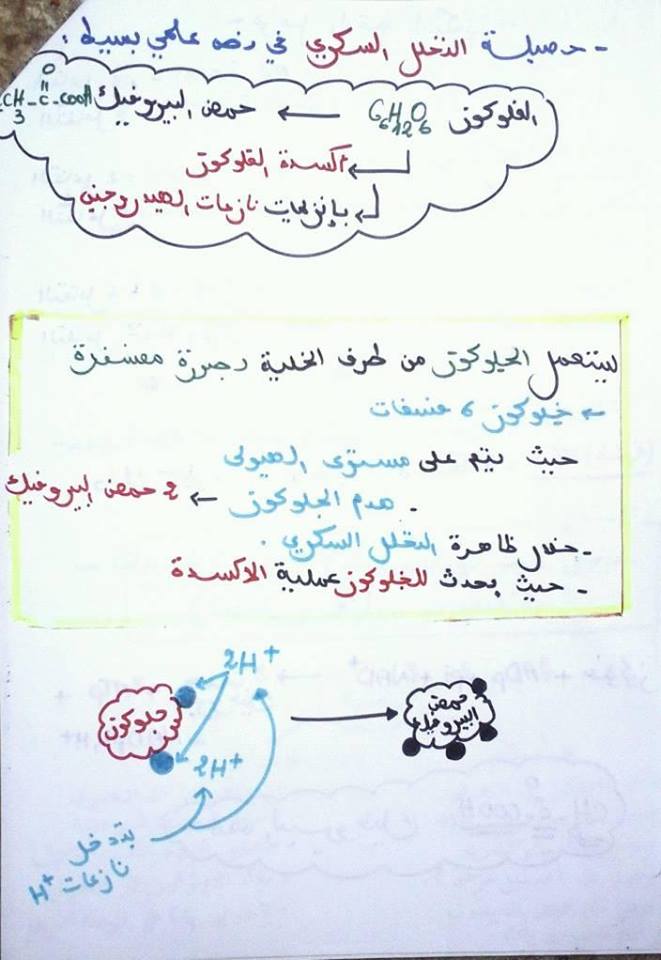 - حصيلة التحلل السكري في نص علمي بسيط :
الغلوكوز C6H12O6 ← حمض البيروفيك CH3-C-COOH
O
أكسدة الغلوكوز
بإنزيمات نازعات الهيدروجين
يستعمل الجلوكوز من طرف الخلية بصورة مفسفرة
← غلوكوز 6 فسفات
حيث يتم على مستوى الهيولى
- هدم الجلوكوز ← 2 حمض البيروفيك
- خلال ظاهرة التحلل السكري .
- حيث يحدث للغلوكوز عملية الاكسدة
2H+
جلوكوز
حمض البيروفيك
2H+
بتدخل
نازعات H+